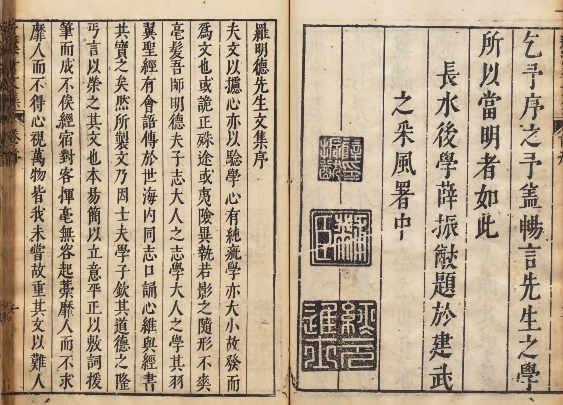 乞予序之予葢暢言先生之學
所以當明者如此
長水後學薛振猷題於建武
之釆風署中
羅明德先生文集序
夫文以攄心亦以驗學心有純疵學亦大小故發而
爲文也或詭正殊途或夷險異軌若影之隨形不爽
毫髮吾師明德夫子志大人之志學大人之學其羽
翼聖經有會語傳於世海內同志口誦心維與經書
共寶之矣然所製文乃因士夫學子欽其道德之隆
丐言以榮之其文也本易簡以立意平正以敷詞援
筆而成不俟經宿對客揮毫無容起藁靡人而不求
靡人而不得心視萬物皆我未嘗故重其文以難人